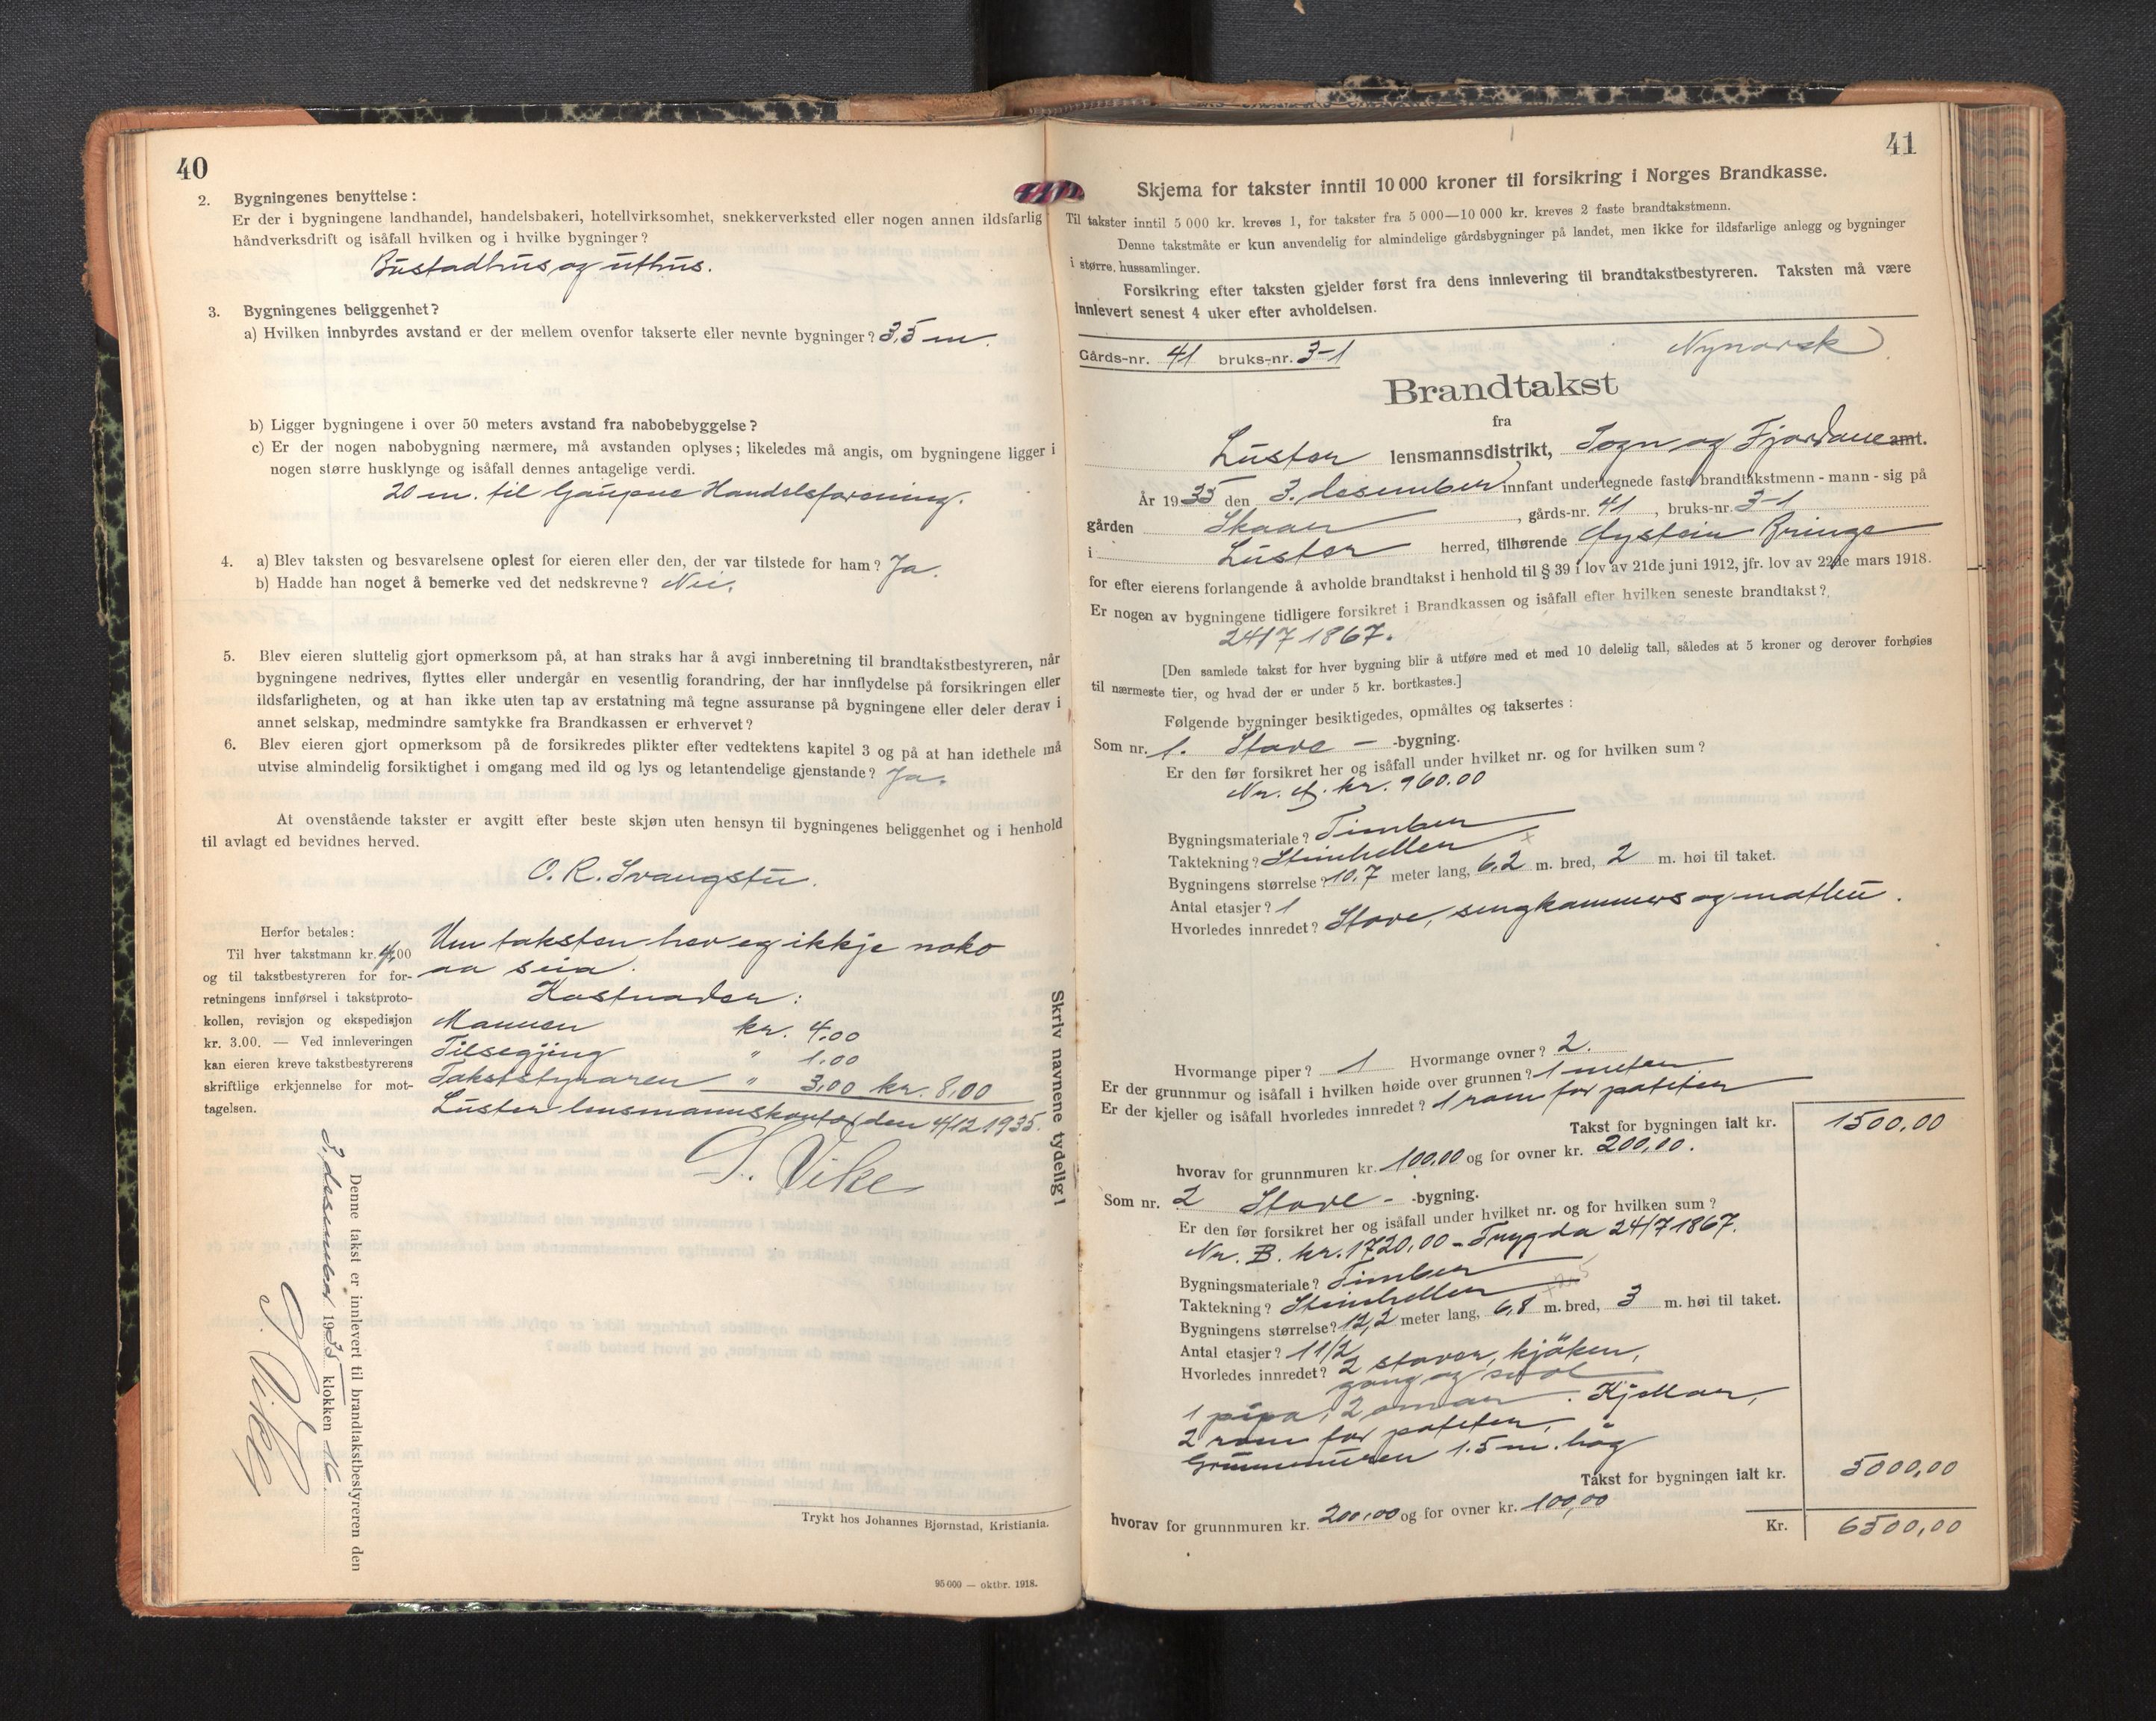 40
2. Bygningenes benyttelse:
Er der i bygningene landhandel, handelsbakeri, hotellvirksomhet, snekkerverksted eller nogen annen ildsfarlig
håndverksdrift og isåfall hvilken og i hvilke bygninger?
Bustadhus og uthus.
3. Bygningenes beliggenhet?
a) Hvilken innbyrdes avstand er der mellem ovenfor takserte eller nevnte bygninger? 3,5 m.
b) Ligger bygningene i over 50 meters avstand fra nabobebyggelse?
c) Er der nogen nabobygning nærmere, må avstanden oplyses; likeledes må angis, om bygningene ligger i
nogen større husklynge og isåfall dennes antagelige verdi.
20 m. til Gaupne Handelsforening.
4. a) Blev taksten og besvarelsene oplest for eieren eller den, der var tilstede for ham? Ja.
b) Hadde han noget å bemerke ved det nedskrevne? Nei.
5. Blev eieren sluttelig gjort opmerksom på, at han straks har å avgi innberetning til brandtakstbestyreren, når
bygningene nedrives, flyttes eller undergår en vesentlig forandring, der har innflydelse på forsikringen eller
ildsfarligheten, og at han ikke uten tap av erstatning må tegne assuranse på bygningene eller deler derav i
annet selskap, medmindre samtykke fra Brandkassen er erhvervet?
6. Blev eieren gjort opmerksom på de forsikredes plikter efter vedtektens kapitel 3 og på at han idethele må
utvise almindelig forsiktighet i omgang med ild og lys og letantendelige gjenstande? Ja.
At ovenstående takster er avgitt efter beste skjøn uten hensyn til bygningenes beliggenhet og i henhold
til avlagt ed bevidnes herved.
O. R. Svangstu.
Herfor betales:
Til hver takstmann kr. 4,00
og til takstbestyreren for for-
retningens innførsel i takstproto-
kollen, revisjon og ekspedisjon
kr. 3.00. — Ved innleveringen
kan eieren kreve takstbestyrerens
skriftlige erkjennelse for mot-
tagelsen.
Um taksten hev eg ikkje noko
aa seia.
Kostnader:
Mannen kr. 4.00
Tilsegjing " 1.00
Takststyraren " 3,00 kr. 8,00
Luster lensmannskontor den 4/12 1935.
S. Vike
Denne takst er innlevert til brandtakstbestyreren den
3. desember 1935 klokken 16.
S. Vike
Skriv navnene tydelig!
Trykt hos Johannes Bjørnstad, Kristiania.
95 000 — oktbr. 1918.
41
Skjema for takster inntil 10 000 kroner til forsikring i Norges Brandkasse.
Til takster inntil 5 000 kr. kreves 1, for takster fra 5 000—10 000 kr. kreves 2 faste brandtakstmenn.
Denne takstmåte er kun anvendelig for almindelige gårdsbygninger på landet, men ikke for ildsfarlige anlegg og bygninger
i større hussamlinger.
Forsikring efter taksten gjelder først fra dens innlevering til brandtakstbestyreren. Taksten må være
innlevert senest 4 uker efter avholdelsen.
Gårds-nr. 41 bruks-nr. 3-1
Nynorsk
Brandtakst
fra
Luster lensmannsdistrikt, Sogn og Fjordane amt.
År 1935 den 3. desember innfant undertegnede faste brandtakstmenn - mann - sig på
gården Skaar, gårds-nr. 41, bruks-nr. 3-1
i Luster herred, tilhørende Øystein Bringe
for efter eierens forlangende å avholde brandtakst i henhold til § 39 i lov av 21de juni 1912, jfr. lov av 22de mars 1918.
Er nogen av bygningene tidligere forsikret i Brandkassen og isåfall efter hvilken seneste brandtakst?
24/7 1867.
[Den samlede takst for hver bygning blir å utføre med et med 10 delelig tall, således at 5 kroner og derover forhøies
til nærmeste tier, og hvad der er under 5 kr. bortkastes.]
Følgende bygninger besiktigedes, opmåltes og taksertes:
Som nr. 1. Stove - -bygning.
Er den før forsikret her og isåfall under hvilket nr. og for hvilken sum?
kr. 960.00
Bygningsmateriale? Timber
Taktekning? Steinheller
Bygningens størrelse? 10.7 meter lang, 6,2 m. bred, 2 m. høi til taket.
Antal etasjer? 1
Hvorledes innredet? Stove, sengkammers og matbu.
Hvormange piper? 1 Hvormange ovner? 2.
Er der grunnmur og isåfall i hvilken høide over grunnen? 1 meter
Er der kjeller og isåfall hvorledes innredet? 1 rom for poteter
Takst for bygningen ialt kr. 1500,00
hvorav for grunnmuren kr. 100,00 og for ovner kr. 200,00.
Som nr. 2 Stove - -bygning.
Er den før forsikret her og isåfall under hvilket nr. og for hvilken sum?
Nr. B. kr. 1720,00 - Trygda 24/7 1867.
Bygningsmateriale? Timber
Taktekning? Steinheller
Bygningens størrelse? 12,2 meter lang, 6,8 m. bred, 3 m. høi til taket.
Antal etasjer? 1 1/2
Hvorledes innredet? 2 stover, kjöken,
gang og sval
1 pipa, 2 omnar. Kjellar,
2 rom for poteter,
Grunnmuren 1.5 m. høg
Takst for bygningen ialt kr. 5000,00
hvorav for grunnmuren kr. 200,00 og for ovner kr. 100,00
Kr. 6500,00